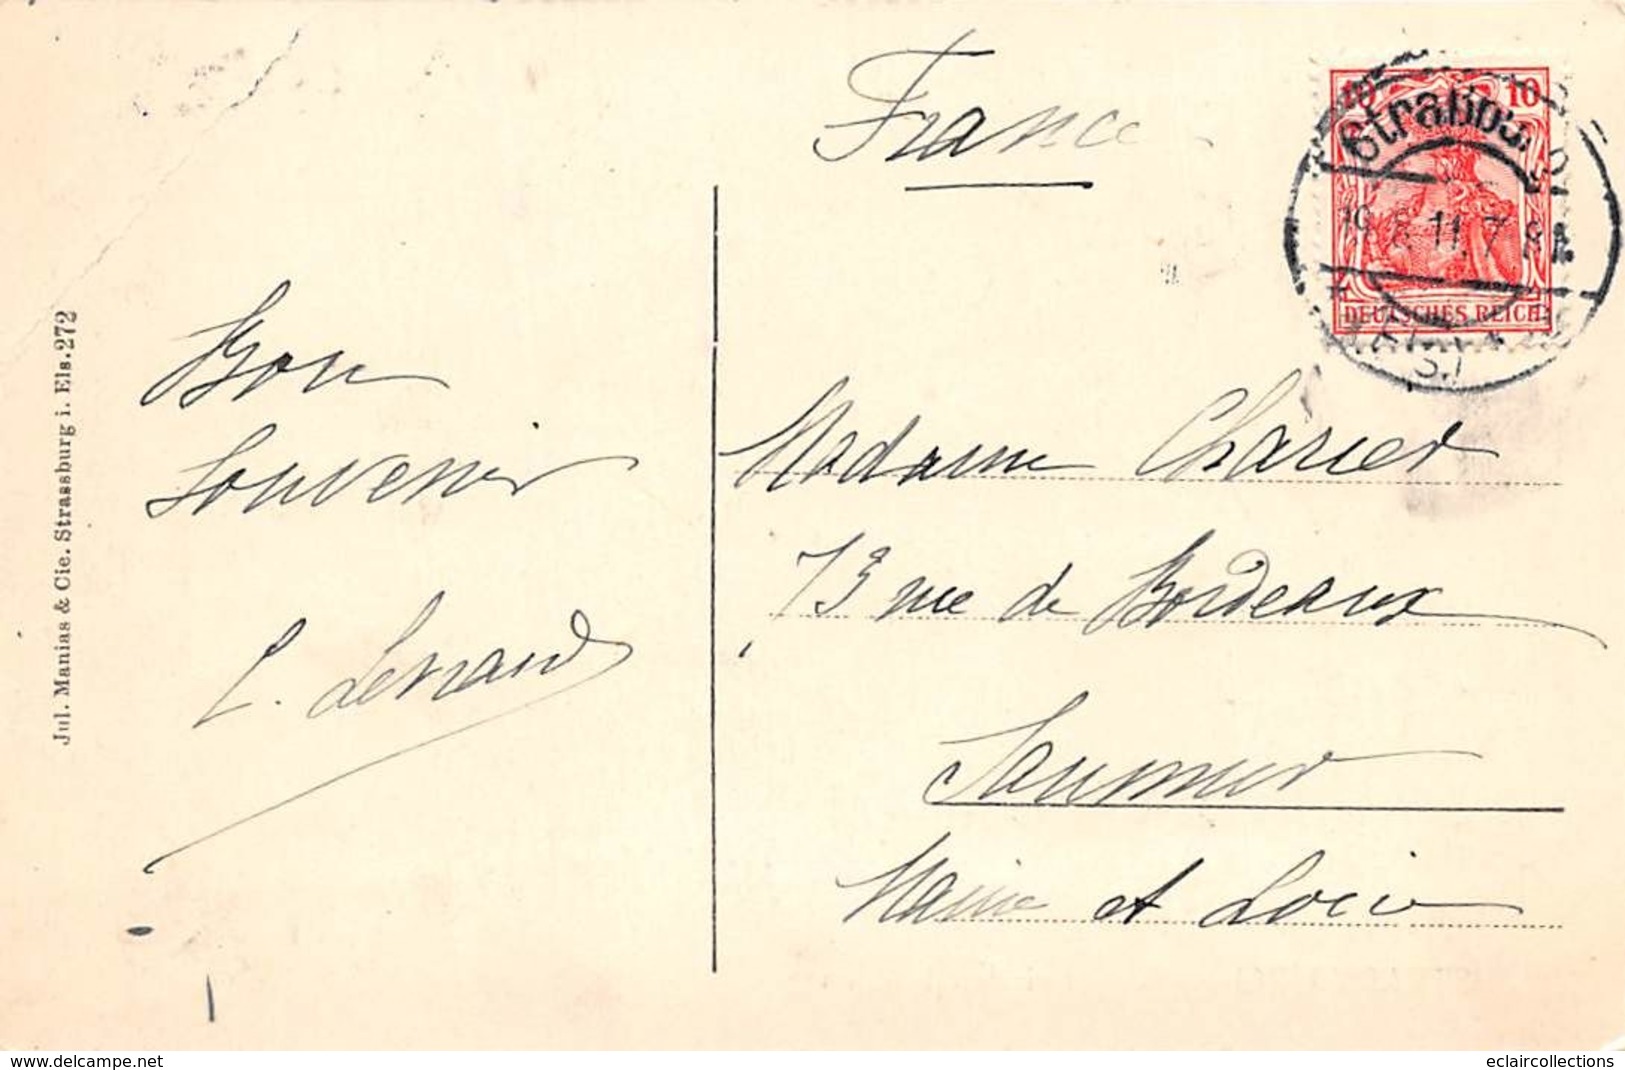 France
10 10
Straßb.
19.8.11.7-8
DEUTSCHES REICH
(Els.)
Bon
Souvenir
L. Lenaud
Madame Charier
73 rue de Bordeaux
Saumur
Maine et Loire
Jul. Manias & Cie. Strassburg i. Els. 272
www.delcampe.net
eclaircollections